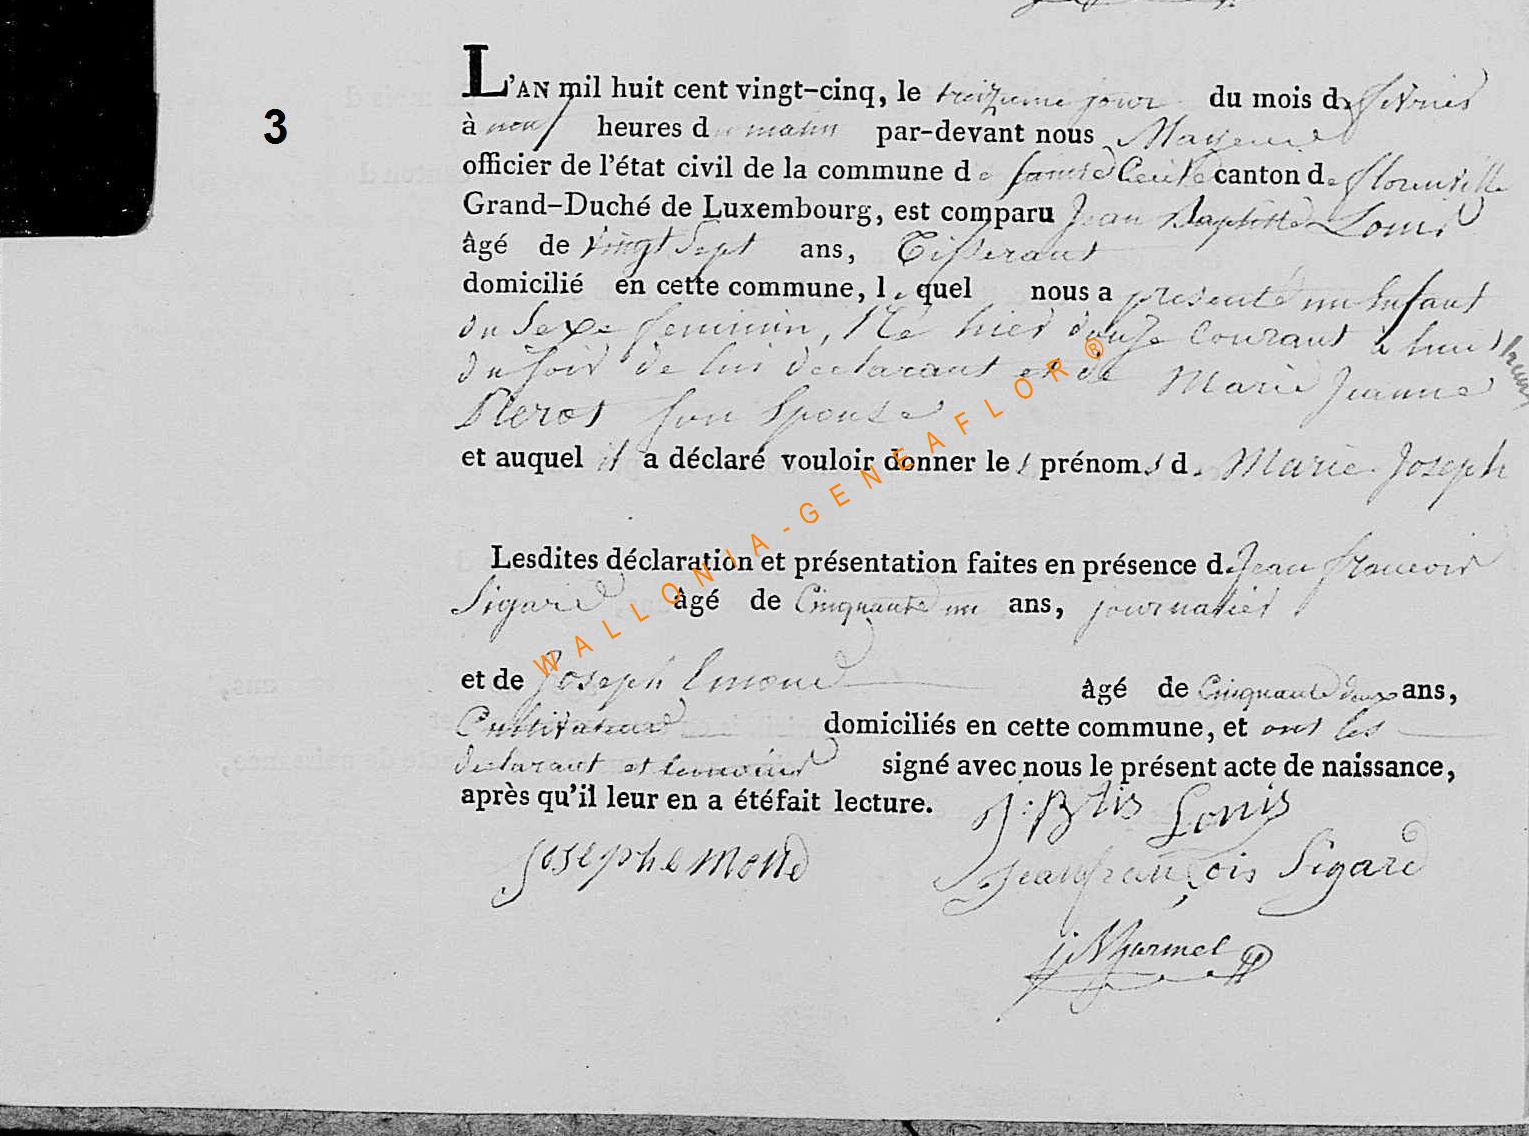 3
L'AN mil huit cent vingt-cinq, le treizieme jour du mois de fevrier
à neuf heures du matin par-devant nous Mayeur
officier de l'état civil de la commune de sainte Cecile canton de florenville
Grand-Duché de Luxembourg, est comparu Jean Baptiste Louis
âgé de vingt Sept ans, Tisserant
domicilié en cette commune, lequel nous a presenté un Enfant
du Sexe feminin, Né hier douze Courant à huit heures
du soir de lui declarant et de Marie Jeanne
Pierot son Epouse
et auquel il a déclaré vouloir donner les prénoms d. Marie Joseph
Lesdites déclaration et présentation faites en présence de Jean francois
Sigard âgé de Cinquante un ans, journalier
et de Joseph Emond âgé de Cinquante deux ans,
Cultivateur domiciliés en cette commune, et ont les
declarant et temoins signé avec nous le présent acte de naissance,
après qu'il leur en a étéfait lecture.
J: Btis Louis
Joseph emond
Jean françois Sigard
WALLONIA-GENEAFLOR®